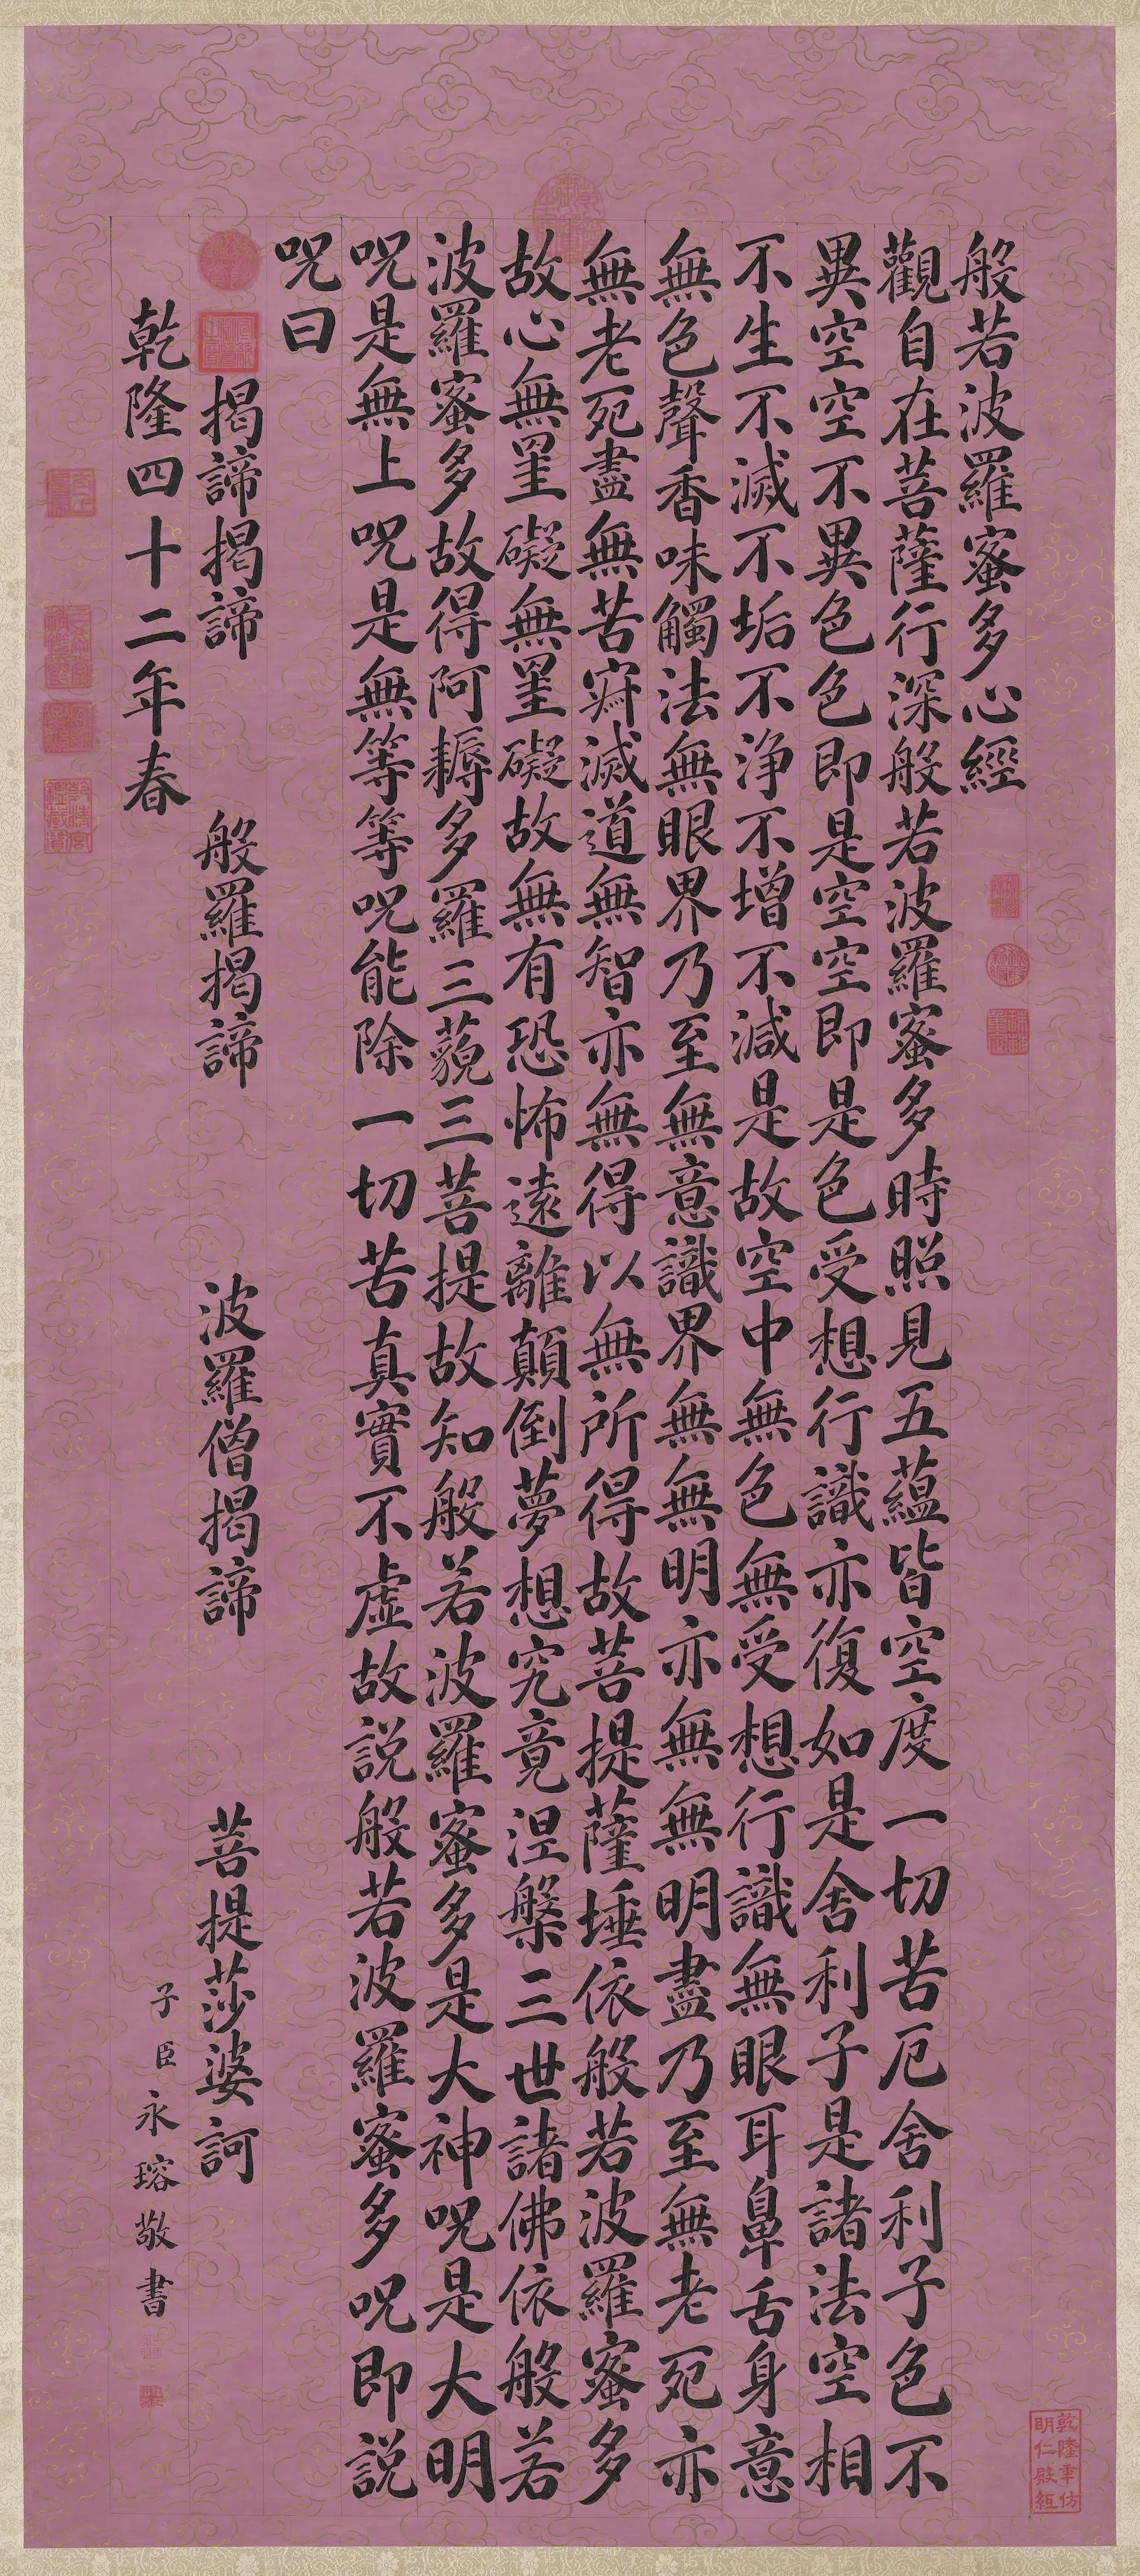 般若波羅蜜多心經
觀自在菩薩行深般若波羅蜜多時照見五蘊皆空度一切苦厄舍利子色不
異空空不異色色即是空空即是色受想行識亦復如是舍利子是諸法空相
不生不滅不垢不浄不增不減是故空中無色無受想行識無眼耳鼻舌身意
無色聲香味觸法無眼界乃至無意識界無無明亦無無明盡乃至無老死亦
無老死盡無苦寂滅道無智亦無得以無所得故菩提薩埵依般若波羅蜜多
故心無罣礙無罣礙故無有恐怖遠離顛倒夢想究竟涅槃三世諸佛依般若
波羅蜜多故得阿耨多羅三藐三菩提故知般若波羅蜜多是大神呪是大明
呪是無上呪是無等等呪能除一切苦真實不虛故説般若波羅蜜多呪即説
呪曰
揭諦揭諦 般羅揭諦 波羅僧揭諦 菩提莎婆訶
乾隆四十二年春 子臣永瑢敬書
乾隆年仿
明仁殿紙